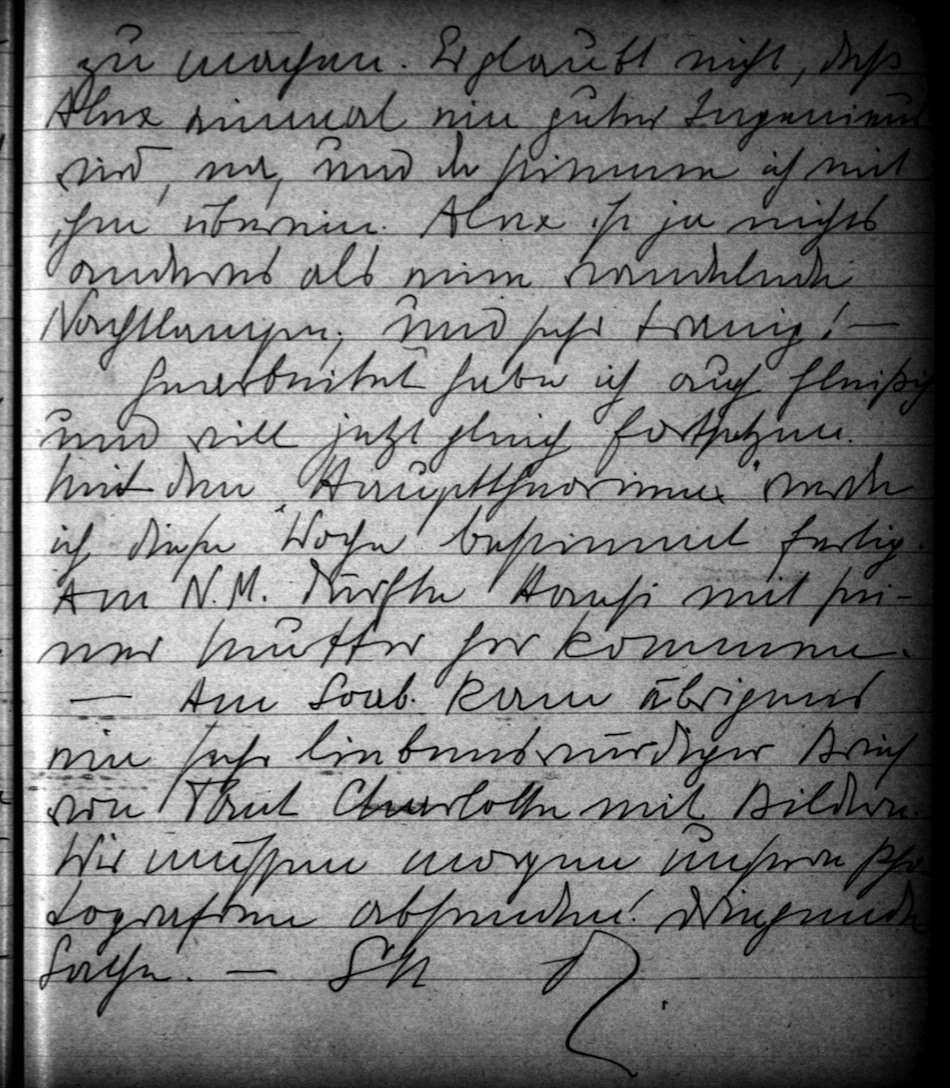 zu machen. Er glaubt nicht, daß
Alex einmal ein guter Ingenieur
wird, na, und da stimme ich mit
ihm überein. Alex ist ja nichts
anderes als eine wandelnde
Nachtlampe, und sehr traurig! —
Gearbeitet habe ich auch fleißig
und will jetzt gleich fortsetzen.
Mit den "Haupttheoremen" werde
ich diese Woche bestimmt fertig.
Am N.M. dürfte Hansi mit sei-
ner Mutter her kommen.
— Am Sab. kam übrigens
ein sehr liebenswürdiger Brief
von Tant Charlotte mit Bildern.
Wir müssen morgen unsere Pho-
tografien absenden! Dringende
Sache. —